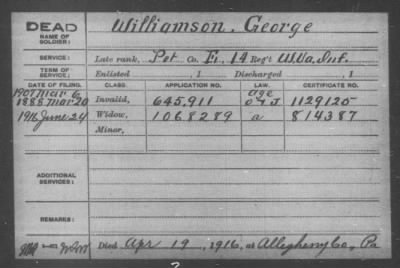 DEAD
NAME OF SOLDIER: Williamson, George
SERVICE: Late rank, Pvt Co. F, 14 Reg't W.Va. Inf.
TERM OF SERVICE: Enlisted , 1 Discharged , 1
DATE OF FILING. CLASS. APPLICATION NO. LAW. CERTIFICATE NO.
1907 Mar 6 age
1888 Mar 20 Invalid, 645,911 o & J 1129125
1916 June 24 Widow, 1068289 a 814387
Minor,
ADDITIONAL SERVICES:
REMARKS:
Died Apr 19, 1916, at Allegheny Co., Pa